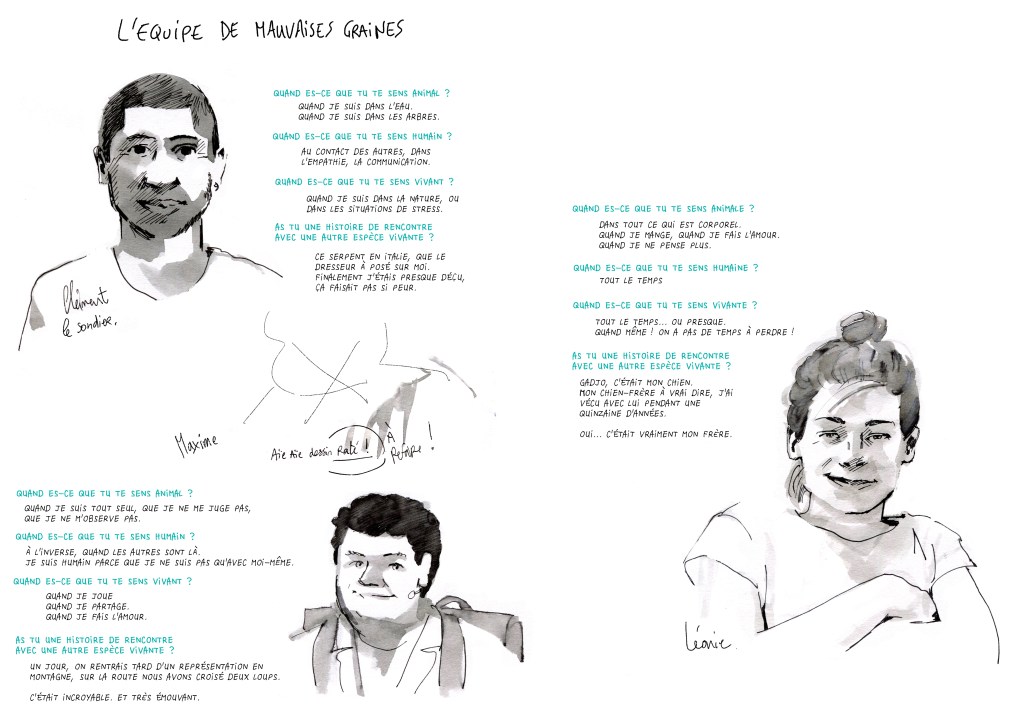 L'EQUIPE DE MAUVAISES GRAINES
QUAND ES-CE QUE TU TE SENS ANIMAL ?
QUAND JE SUIS DANS L'EAU.
QUAND JE SUIS DANS LES ARBRES.
QUAND ES-CE QUE TU TE SENS HUMAIN ?
AU CONTACT DES AUTRES, DANS
L'EMPATHIE, LA COMMUNICATION.
QUAND ES-CE QUE TU TE SENS VIVANT ?
QUAND JE SUIS DANS LA NATURE, OU
DANS LES SITUATIONS DE STRESS.
AS TU UNE HISTOIRE DE RENCONTRE
AVEC UNE AUTRE ESPÈCE VIVANTE ?
CE SERPENT EN ITALIE, QUE LE
DRESSEUR À POSÉ SUR MOI.
FINALEMENT J'ÉTAIS PRESQUE DÉÇU,
ÇA FAISAIT PAS SI PEUR.
Clément
le sondier.
Maxime
Aïe Aïe dessin Raté !
À
Refaire !
QUAND ES-CE QUE TU TE SENS ANIMAL ?
QUAND JE SUIS TOUT SEUL, QUE JE NE ME JUGE PAS,
QUE JE NE M'OBSERVE PAS.
QUAND ES-CE QUE TU TE SENS HUMAIN ?
À L'INVERSE, QUAND LES AUTRES SONT LÀ.
JE SUIS HUMAIN PARCE QUE JE NE SUIS PAS QU'AVEC MOI-MÊME.
QUAND ES-CE QUE TU TE SENS VIVANT ?
QUAND JE JOUE
QUAND JE PARTAGE.
QUAND JE FAIS L'AMOUR.
AS TU UNE HISTOIRE DE RENCONTRE
AVEC UNE AUTRE ESPÈCE VIVANTE ?
UN JOUR, ON RENTRAIS TARD D'UN REPRÉSENTATION EN
MONTAGNE, SUR LA ROUTE NOUS AVONS CROISÉ DEUX LOUPS.
C'ÉTAIT INCROYABLE. ET TRÈS ÉMOUVANT.
QUAND ES-CE QUE TU TE SENS ANIMALE ?
DANS TOUT CE QUI EST CORPOREL.
QUAND JE MANGE, QUAND JE FAIS L'AMOUR.
QUAND JE NE PENSE PLUS.
QUAND ES-CE QUE TU TE SENS HUMAINE ?
TOUT LE TEMPS
QUAND ES-CE QUE TU TE SENS VIVANTE ?
TOUT LE TEMPS... OU PRESQUE.
QUAND MÊME ! ON A PAS DE TEMPS À PERDRE !
AS TU UNE HISTOIRE DE RENCONTRE
AVEC UNE AUTRE ESPÈCE VIVANTE ?
GADJO, C'ÉTAIT MON CHIEN.
MON CHIEN-FRÈRE À VRAI DIRE, J'AI
VÉCU AVEC LUI PENDANT UNE
QUINZAINE D'ANNÉES.
OUI... C'ÉTAIT VRAIMENT MON FRÈRE.
Léonie.